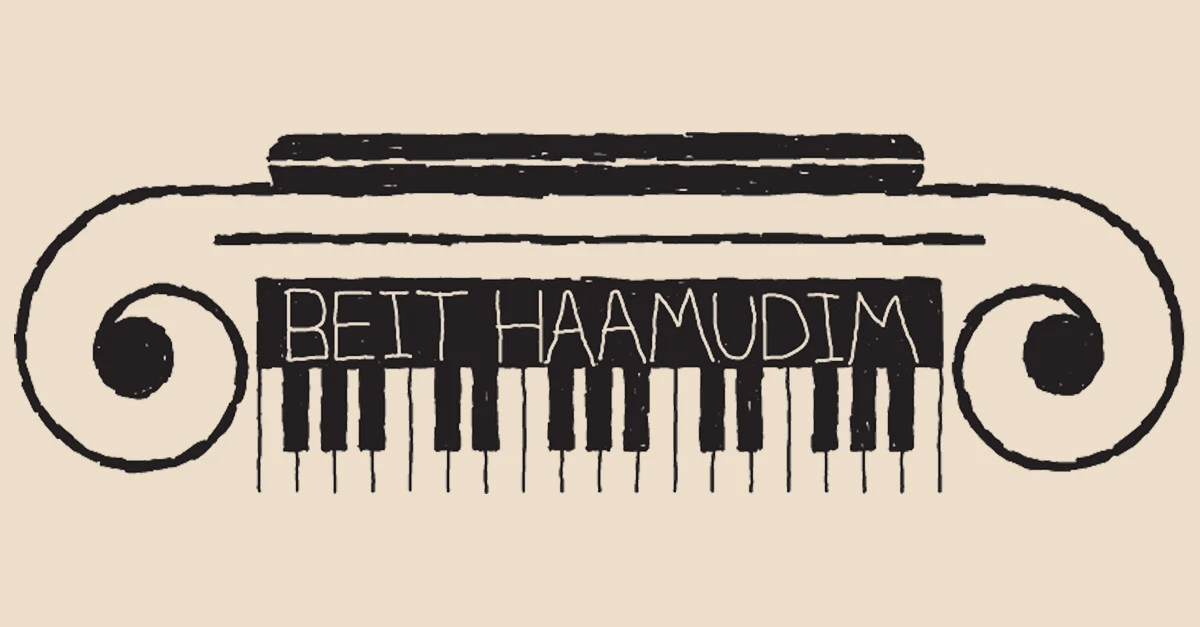 BEIT HAAMUDIM